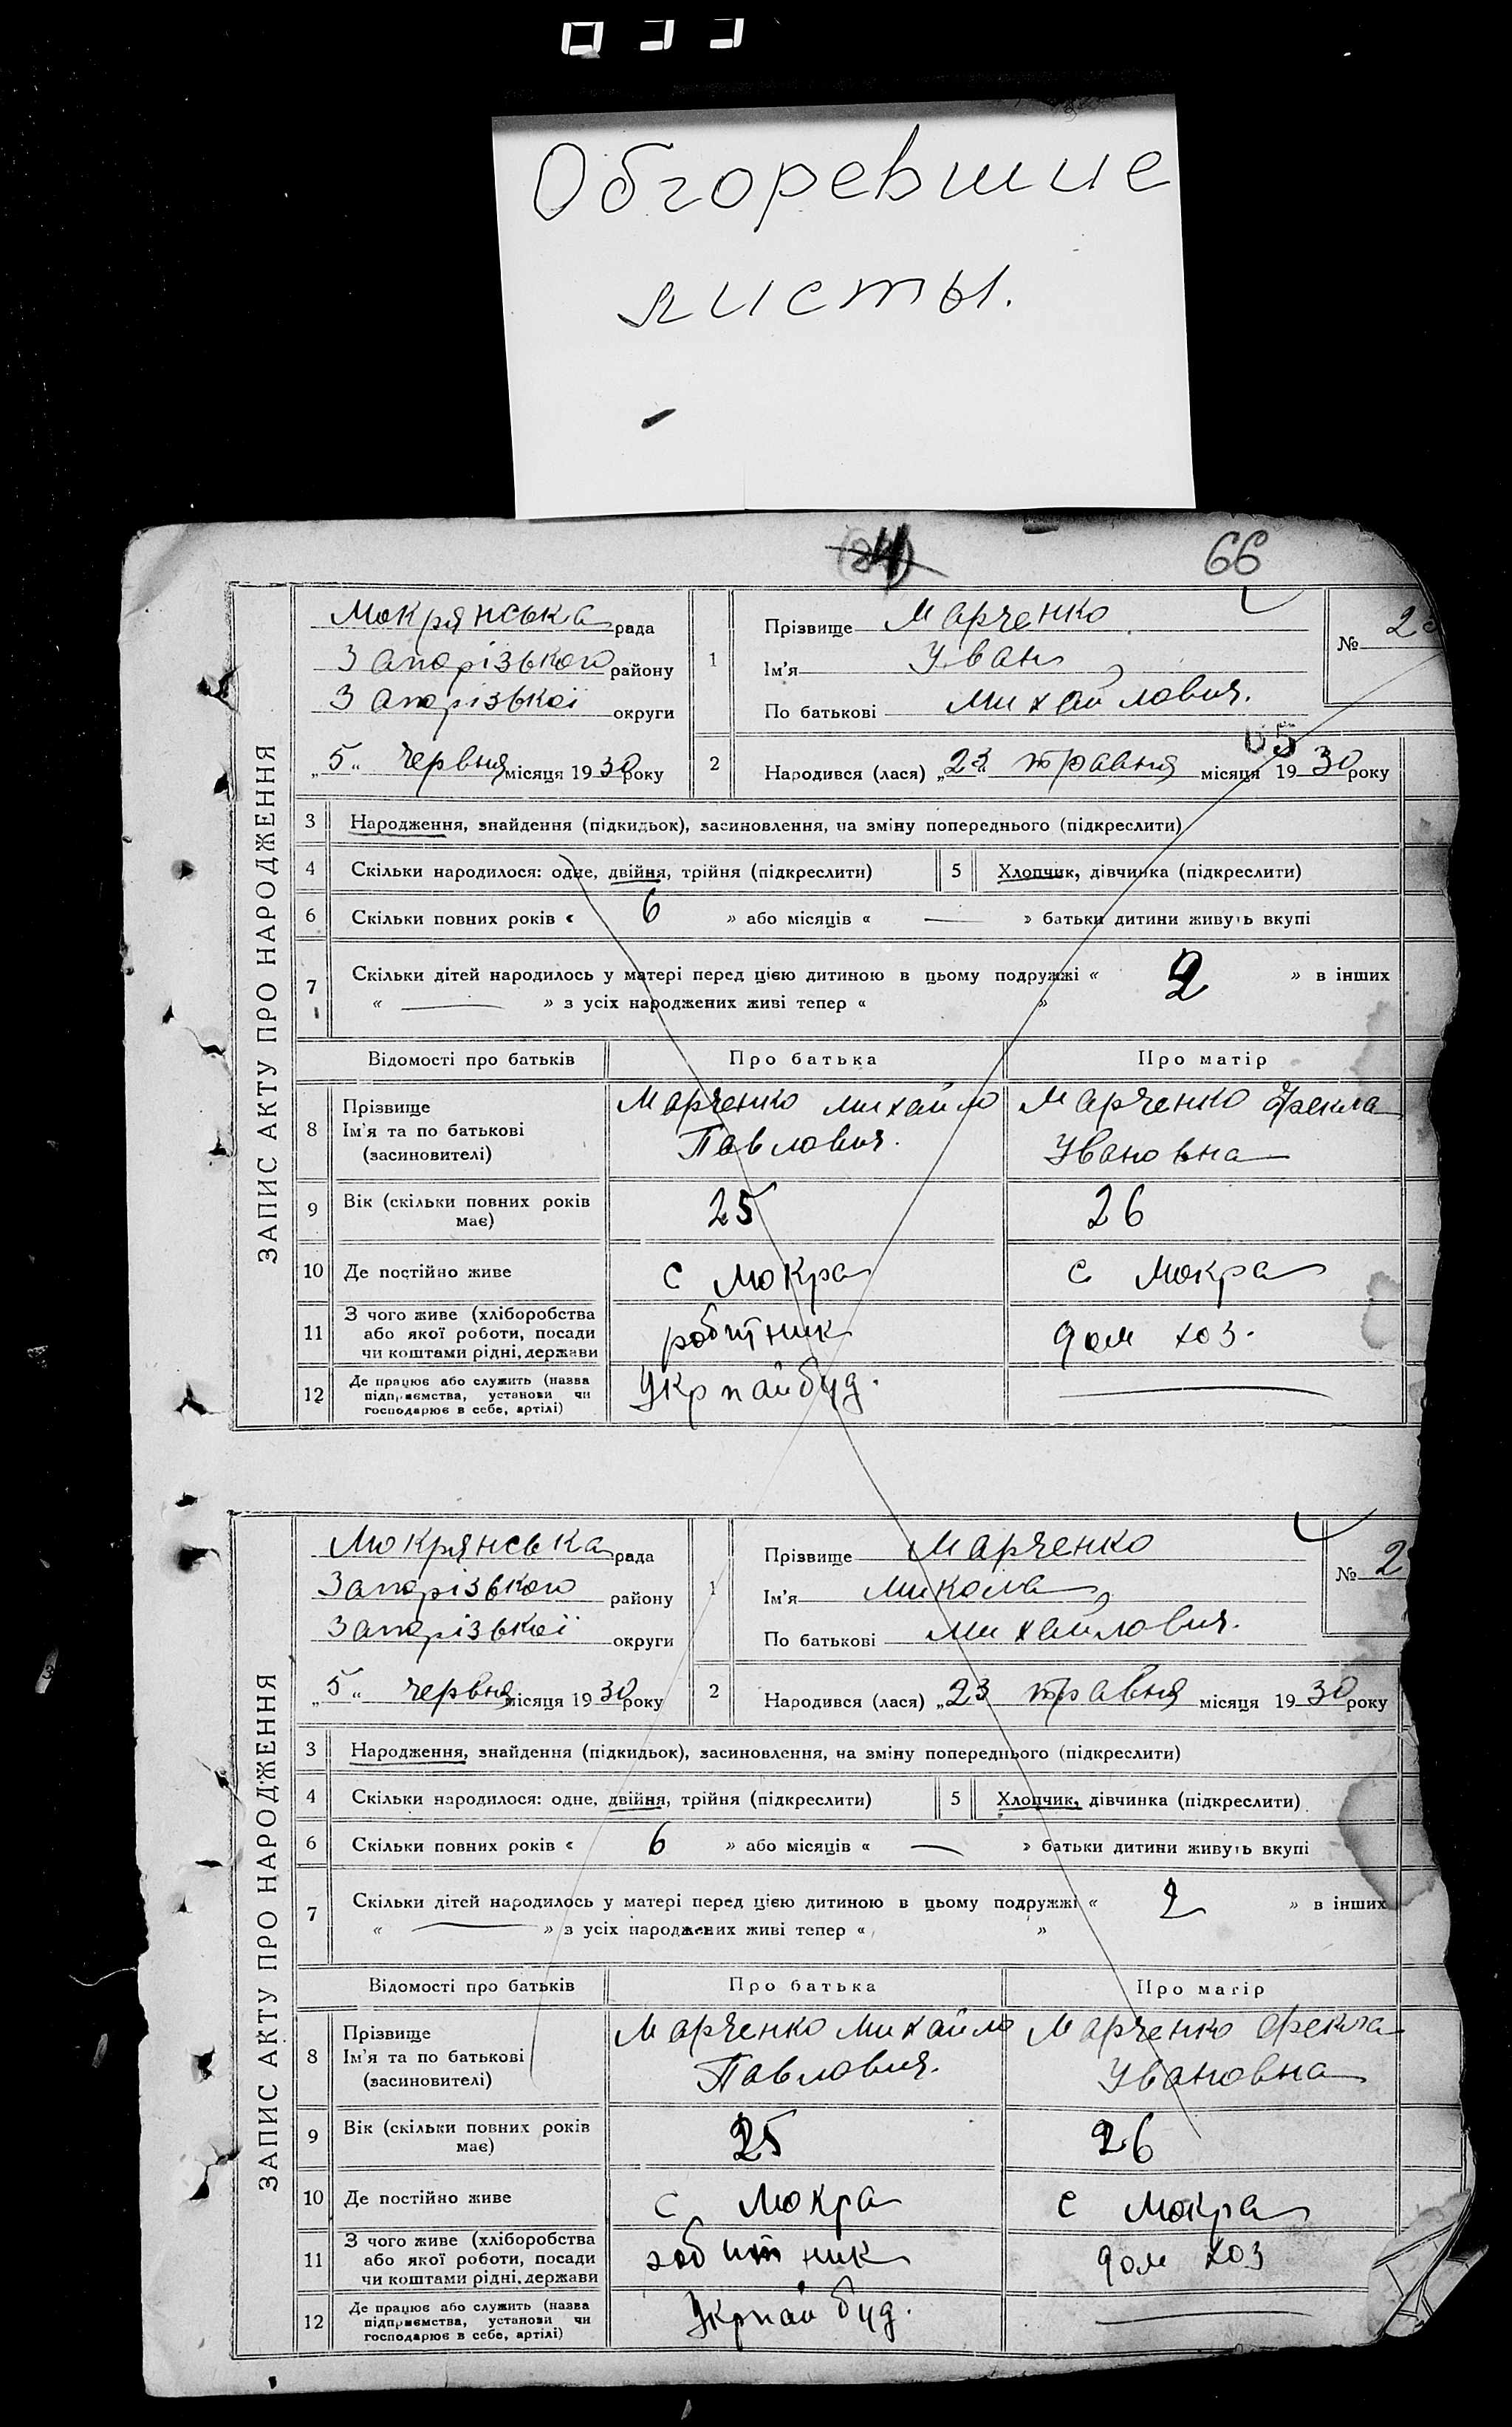 033
Обгоревшие
листы.
(84)
66
ЗАПИС АКТУ ПРО НАРОДЖЕННЯ
Мокрянська рада
Запорізького району
Запорізької округи
„5“ червня місяця 1930 року
1
Прізвище Марченко
Ім'я Иван
По батькові Михайлович.
№ 2
65
2
Народився (лася) „23“ травня місяця 1930 року
3 Народження, знайдення (підкидьок), засиновлення, на зміну попереднього (підкреслити)
4 Скільки народилося: одне, двійня, трійня (підкреслити) 5 Хлопчик, дівчинка (підкреслити)
6 Скільки повних років « 6 » або місяців « — » батьки дитини живуть вкупі
7 Скільки дітей народилось у матері перед цією дитиною в цьому подружжі « 2 » в інших
« — » з усіх народжених живі тепер « »
Відомості про батьків Про батька Про матір
8 Прізвище Ім'я та по батькові (засиновителі)
Марченко Михайло Павлович.
Марченко Фекла Ивановна
9 Вік (скільки повних років має) 25 26
10 Де постійно живе с Мокра с Мокра
11 З чого живе (хліборобства або якої роботи, посади чи коштами рідні, держави робітник дом хоз.
12 Де працює або служить (назва підприємства, установи чи господарює в себе, артілі) Укрпайбуд. —
ЗАПИС АКТУ ПРО НАРОДЖЕННЯ
Мокрянська рада
Запорізького району
Запорізької округи
„5“ червня місяця 1930 року
1
Прізвище Марченко
Ім'я Микола
По батькові Михайлович.
№ 2
2
Народився (лася) „23 травня місяця 1930 року
3 Народження, знайдення (підкидьок), засиновлення, на зміну попереднього (підкреслити)
4 Скільки народилося: одне, двійня, трійня (підкреслити) 5 Хлопчик, дівчинка (підкреслити)
6 Скільки повних років « 6 » або місяців « — » батьки дитини живуть вкупі
7 Скільки дітей народилось у матері перед цією дитиною в цьому подружжі « 2 » в інших
« — » з усіх народжених живі тепер « »
Відомості про батьків Про батька Про матір
8 Прізвище Ім'я та по батькові (засиновителі)
Марченко Михайло Павлович.
Марченко Фекла Ивановна
9 Вік (скільки повних років має) 25 26
10 Де постійно живе с Мокра с Мокра
11 З чого живе (хліборобства або якої роботи, посади чи коштами рідні, держави робітник дом хоз
12 Де працює або служить (назва підприємства, установи чи господарює в себе, артілі) Укрпайбуд. —